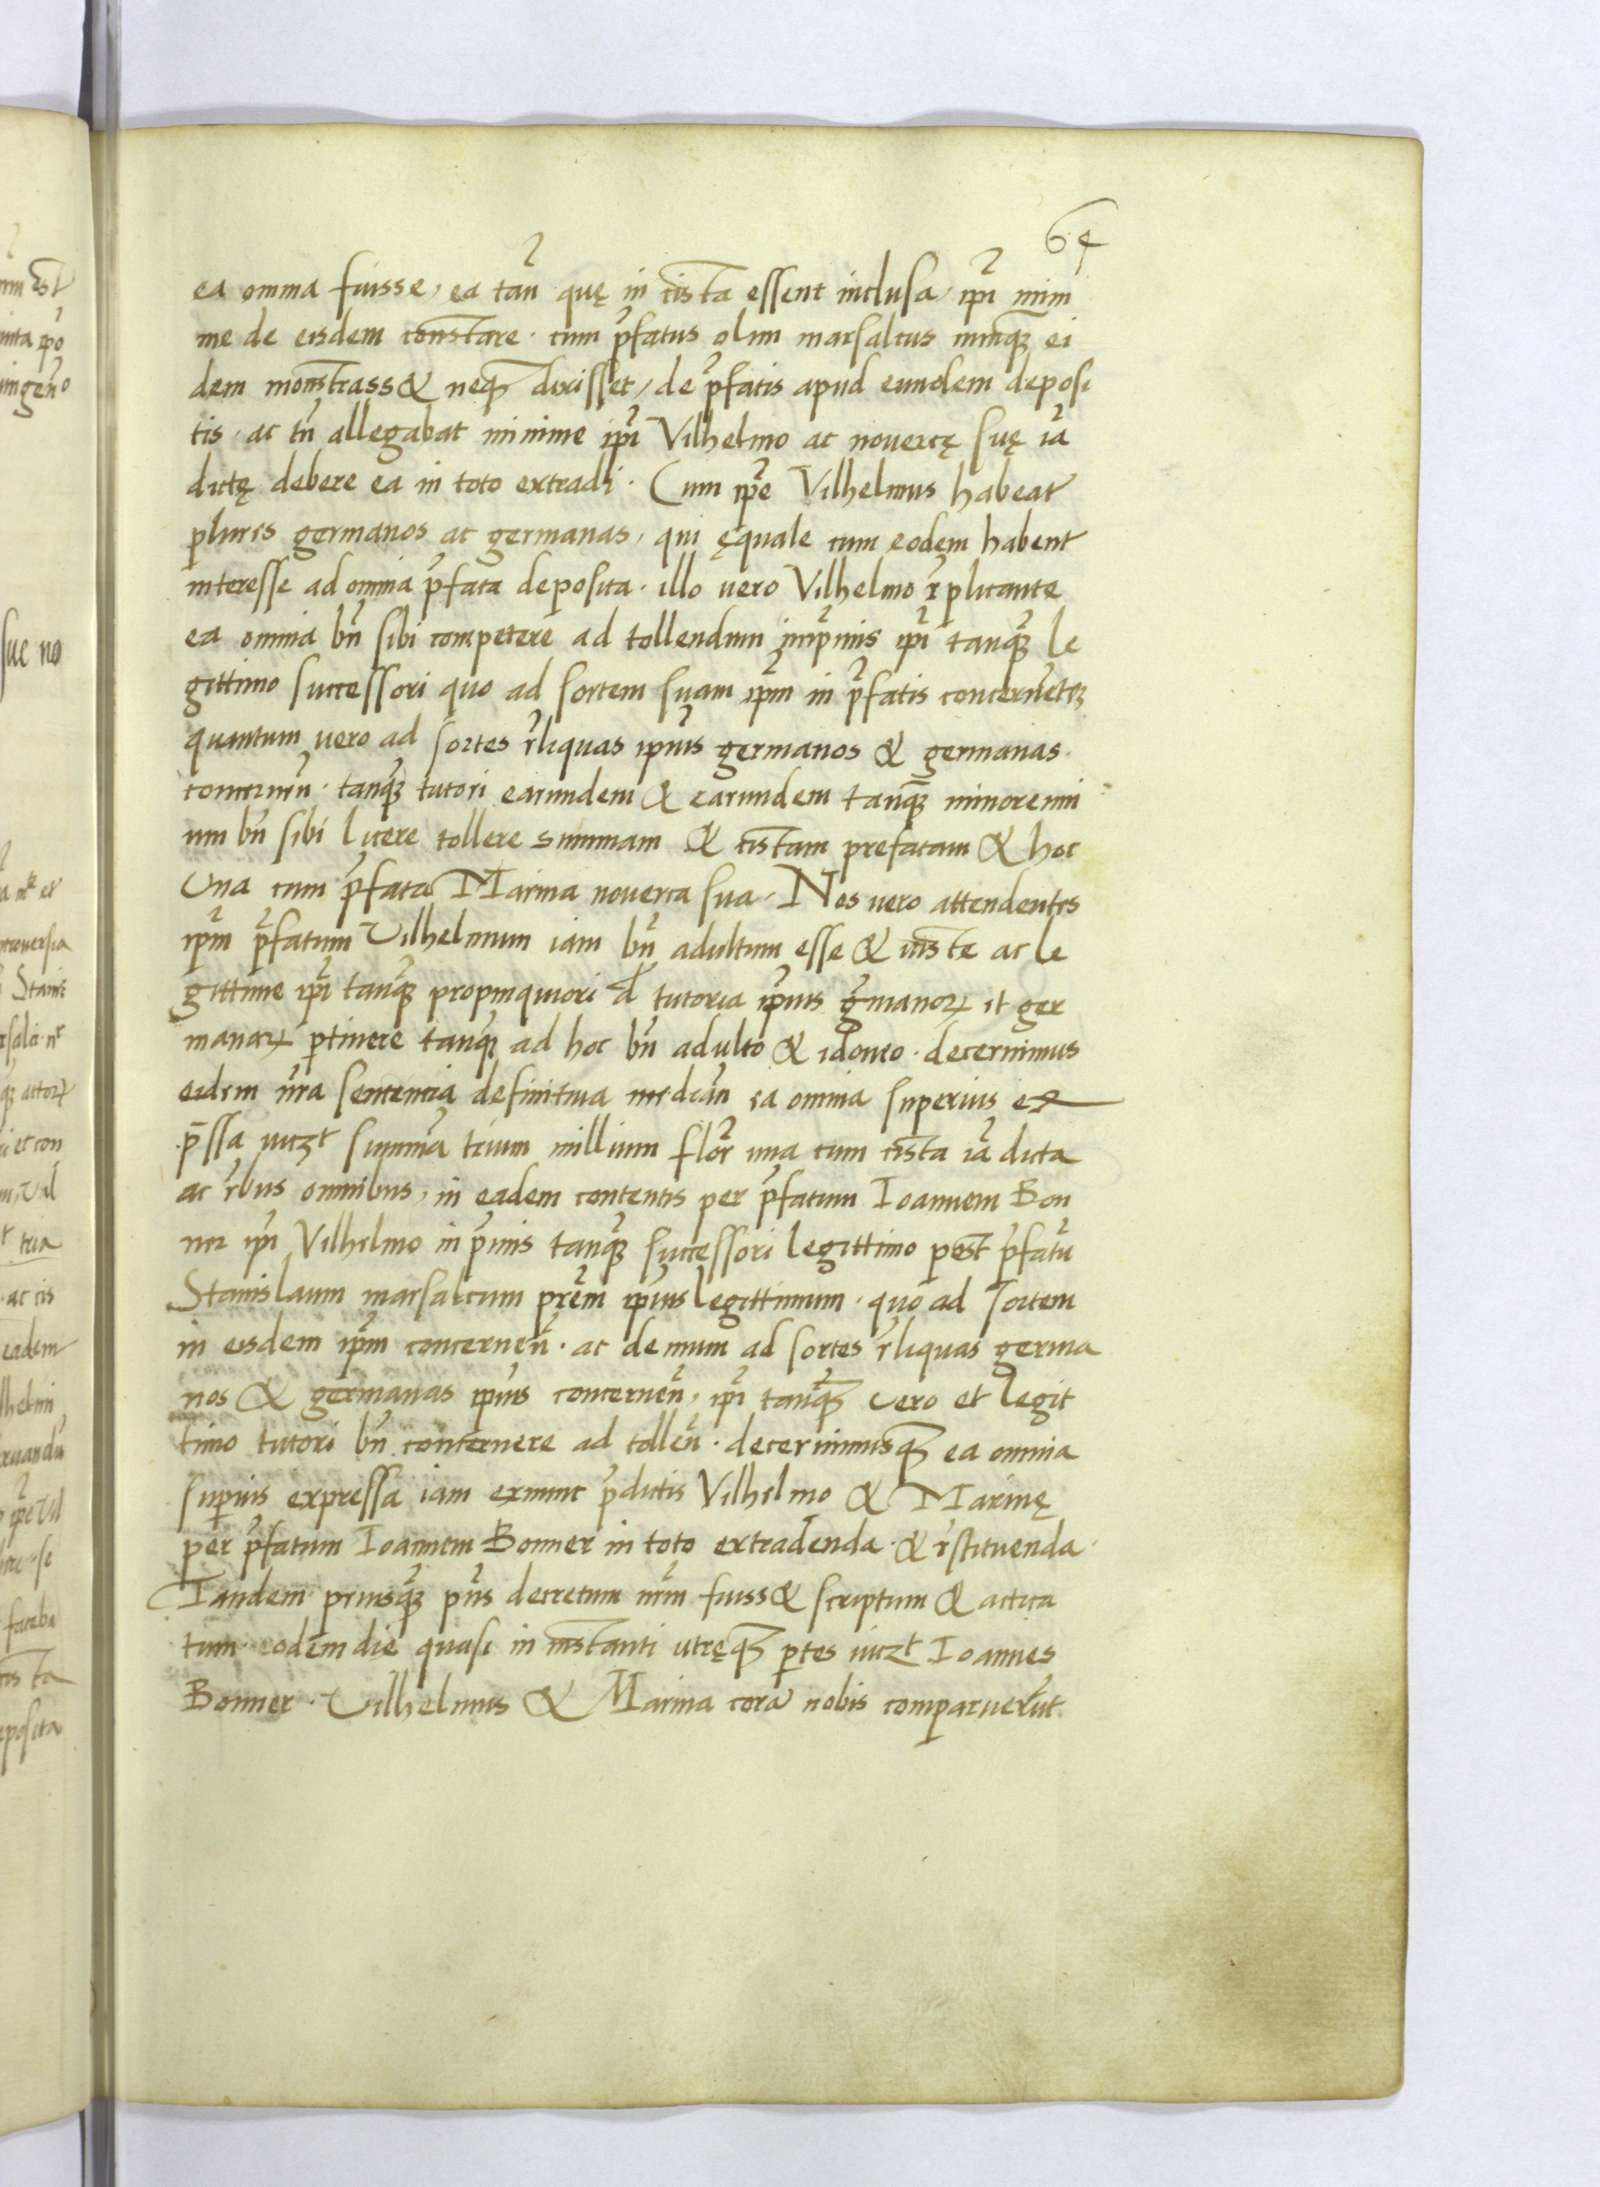 64
ea omnia fuisse, ea tan̄ quę in cista essent inclusa, ip̄i mini
me de eisdem constare. cum p̄fatus olim marsalcus nunq̄ ei
dem monstrass& neq₃ dixisset, de p̄fatis apud eundem deposi
tis, ac tn̄ allegabat minime ip̄i Vilhelmo ac nouercę suę iā
dictę debere ea in toto extradi. Cum ip̄e Vilhelmus habeat
plures germanos ac germanas, qui ęquale cum eodem habent
interesse ad omnia p̄fata deposita. illo uero Vilhelmo r̄plicante
ea omnia bn̄ sibi competere ad tollendum inp̄mis ip̄i tanq̄ le
gittimo successori quo ad sortem suam ip̄m in p̄fatis concernētē
quantum uero ad sortes r̄liquas ipius germanos & germanas
concernen̄. tanq̄ tutori eorundem & earundem tanq̄ minorenni
um bn̄ sibi licere tollere summam & cistam prefatam & hoc
Vna cum p̄fata Marina nouerca sua. Nos uero attendentes
ip̄m p̄fatum Vilhelmum iam bn̄ adultum esse & iuste ac le
gittime ip̄i tanq̄ propinquiori d tutoria ip̄ius ḡmanoꝝ et ger
manaꝝ p̄tinere tanq̄ ad hoc bn̄ adulto & idoneo. decernimus
eidem nr̄a sentencia definitiua median̄ ea omnia superius ex
p̄ssa uiczt summā trium millium flor̄ una cum cista iā dicta
ac r̄bus omnibus, in eadem contentis per p̄fatum Ioannem Bon
ner ip̄i Vilhelmo in p̄mis tanq̄ successori legittimo post p̄fatū
Stanislaum marsalcum pr̄em ip̄ius legittimum. quo ad sortem
in eisdem ip̄m concernen̄. ac demum ad sortes r̄liquas germa
nos & germanas ip̄ius concernen̄, ip̄i tanq̄ uero et legit
timo tutori bn̄ concernere ad tollen̄. decernimusq₃ ea omnia
sup̄ius expressa iam exnunc p̄dictis Vilhelmo & Marinę
per p̄fatum Ioannem Bonner in toto extradenda. & r̄stituenda.
Tandem priusq̄ pn̄s decretum nr̄m fuiss& scriptum & actica
tum. eodem die quasi in instanti utręq₃ p̄tes uiczt Ioannes
Bonner. Vilhelmus & Marina corā nobis comparuerūt